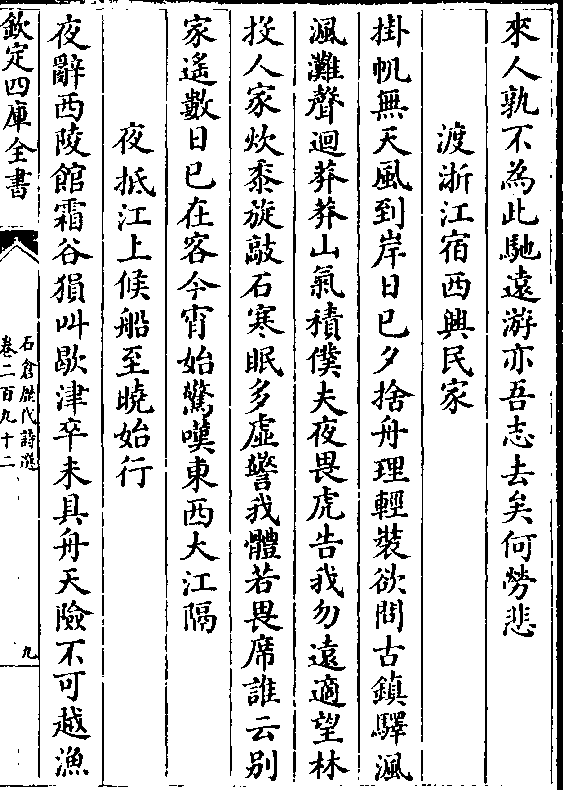 來人孰不為此馳遠游亦吾志去矣何勞悲
渡浙江宿西興民家
掛帆無天風到岸日已夕捨舟理輕裝欲問古鎮驛渢
渢灘聲迴莽莽山氣積僕夫夜畏虎告我勿遠適望林
投人家炊黍旋敲石寒眠多虛警我體若畏席誰云别
家遙數日已在客今宵始驚嘆東西大江隔
夜抵江上候船至曉始行
夜辭西陵館霜谷猿叫歇津卒未具舟天險不可越漁
欽定四庫全書
石倉歷代詩選
卷二百九十二
九